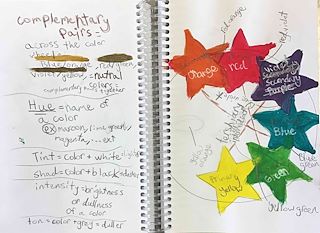 complementary
Pairs-
across the color
wheel
Blue/orange, red/green
violet/yellow, = nutral
colors
complementary
together
Hue = name of
a color
ex) maroon, lime green,
magenta, ... ext
Tint = color + white
shade = color + black
intensity = brightness
or dullness
of a color
ton = color + gray = duller
red-orange
red-violet
orange
red
violet
secondary
purple
Blue
Blue
green
green
Primary
yellow
yellow green